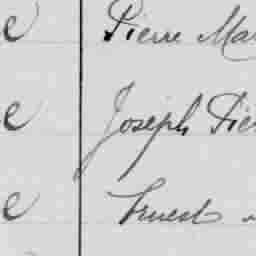 e Pierre Ma
e Joseph Pie
e Ernest